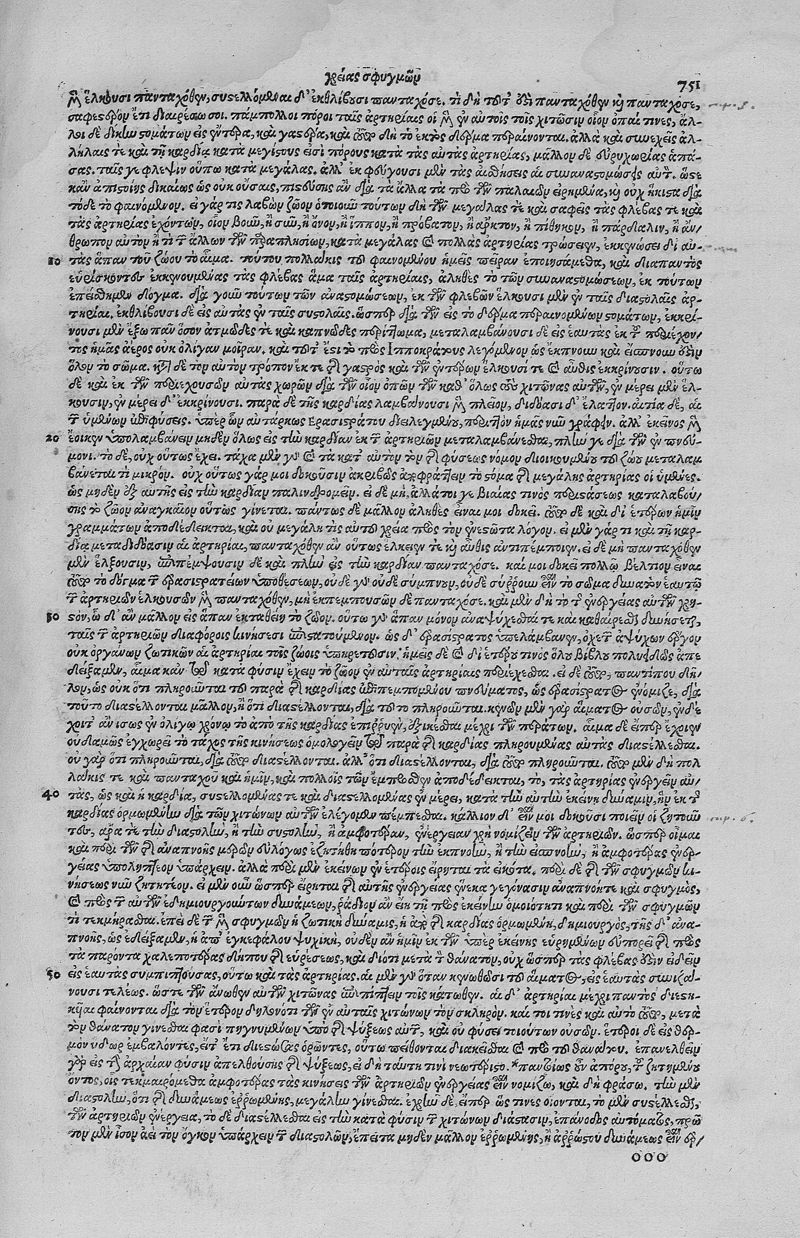 χρείας σφυγμῶν
751
ἕλκουσι πανταχόθεν, συστελλόμεναι δ' ἐκθλίβουσι πανταχόσε. τί δὴ τοῦτ' ἐστὶ πανταχόθεν καὶ πανταχόσε,
σαφέστερον ἔτι διαιρέσω σοι. πάμπολλοι πόροι ταῖς ἀρτηρίαις οἱ μὲν ἐν αὐτοῖς τοῖς χιτῶσιν οἷον ὀπαί τινες, ἄλ-
λοι δὲ δίκην στομάτων εἰς ἔντερα, καὶ γαστέρα, καὶ πρὸς δὴ τὸ ἐκτὸς δέρμα περαίνονται. ἀλλὰ καὶ συνεχεῖς ἀλ-
λήλαις τε καὶ τῇ καρδίᾳ κατὰ μεγίστους εἰσὶ πόρους κατὰ τὰς αὐτὰς ἀρτηρίας, μᾶλλον δὲ εὐρυχωρίας ἁπά-
σας. ταῖς γε φλεψὶν οὔπω κατὰ μεγάλας. ἀλλ' ἐκφεύγουσι μὲν τὰς αἰσθήσεις αἱ συναναστομώσεις αὐτῶν. ὥστε
κἂν ἀπιστοίης δικαίως ὡς οὐκ οὔσαις, πιστεύσεις ἂν διά τε ἄλλα τὰ πρὸς τῶν παλαιῶν εἰρημένα, καὶ οὐχ ἥκιστα διὰ
τόδε τὸ φαινόμενον. εἰ γάρ τις λαβὼν ζῷον ὁποιοῦν τούτων δὴ τῶν μεγάλας τε καὶ σαφεῖς τὰς φλέβας τε καὶ
τὰς ἀρτηρίας ἐχόντων, οἷον βοῦν, ἢ σῦν, ἢ ὄνον, ἢ ἵππον, ἢ πρόβατον, ἢ ἄρκτον, ἢ πίθηκον, ἢ πάρδαλιν, ἢ ἄν-
θρωπον αὐτὸν ἢ τι τῶν ἄλλων τῶν παραπλησίων, κατὰ μεγάλας καὶ πολλὰς ἀρτηρίας τρώσειεν, ἐκκενώσει δι' αὐ-
10 τὰς ἅπαν τοῦ ζῴου τὸ αἷμα. τούτου πολλάκις τοῦ φαινομένου ἡμεῖς πεῖραν ἐποιησάμεθα, καὶ διαπαντὸς
εὑρίσκοντες ἐκκενουμένας τὰς φλέβας ἅμα ταῖς ἀρτηρίαις, ἀληθὲς τὸ τῶν συναναστομώσεων, ἐκ τούτων
ἐπείσθημεν δόγμα. διὰ γοῦν τούτων τῶν ἀναστομώσεων, ἐκ τῶν φλεβῶν ἕλκουσι μὲν ἐν ταῖς διαστολαῖς ἀρ-
τηρίαι. ἐκθλίβουσι δὲ εἰς αὐτὰς ἐν ταῖς συστολαῖς. ὥσπερ διὰ τῶν εἰς τὸ δέρμα περαινομένων στομάτων, ἐκκρί-
νουσι μὲν ἔξω πᾶν ὅσον ἀτμῶδές τε καὶ καπνῶδες περίττωμα, μεταλαμβάνουσι δὲ εἰς ἑαυτὰς ἐκ τοῦ περιέχον-
τος ἡμᾶς ἀέρος οὐκ ὀλίγην μοῖραν. καὶ τοῦτ' ἔστι τὸ πρὸς Ἱπποκράτους λεγόμενον ὡς ἔκπνουν καὶ εἴσπνουν ἐστὶν
ὅλον τὸ σῶμα. κατὰ δὲ τὸν αὐτὸν τρόπον ἔκ τε τῆς γαστρὸς καὶ τῶν ἐντέρων ἕλκουσί τε καὶ αὖθις ἐκκρίνουσιν. οὕτω
δὲ καὶ ἐκ τῶν περιεχουσῶν αὐτὰς χωρῶν διὰ τῶν οἷον ὀπῶν τῶν καθ' ὅλους τοὺς χιτῶνας αὐτῶν, ἐν μέρει μὲν ἕλ-
κουσιν, ἐν μέρει δ' ἐκκρίνουσι. παρὰ δὲ τῆς καρδίας λαμβάνουσι μὲν πλεῖον, διδόασι δ' ἔλαττον. αἰτία δὲ, αἱ
τῶν ὑμένων ἐπιφύσεις. ὑπὲρ ὧν αὐτάρκως Ἐρασιστράτου διειλεγμένου, περιττὸν ἡμᾶς νῦν γράφειν. ἀλλ' ἐκεῖνος μὲν
20 ἔοικεν ὑπολαμβάνειν μηδὲν ὅλως εἰς τὴν καρδίαν ἐκ τῶν ἀρτηριῶν μεταλαμβάνεσθαι, πλήν γε διὰ τῶν ἐν πνεύ-
μονι. τὸ δὲ, οὐχ οὕτως ἔχει. τάχα μὲν γὰρ καὶ τὰ κατ' αὐτὸν τὸν τῆς φύσεως νόμον διοικουμένου τοῦ ζῴου μεταλαμ-
βάνεταί τι μικρόν. οὐχ οὕτως γάρ μοι δοκοῦσιν ἀκριβῶς διαφράττειν τὸ στόμα τῆς μεγάλης ἀρτηρίας οἱ ὑμένες.
ὡς μηδὲν ἐξ αὐτῆς εἰς τὴν καρδίαν παλινδρομεῖν. εἰ δὲ μὴ, ἀλλά τοί γε βιαίας τινὸς περιστάσεως καταλαβού-
σης τὸ ζῷον ἀναγκαῖον οὕτως γίνεται. πάντως δὲ μᾶλλον ἀληθὲς εἶναί μοι δοκεῖ. τοῦτο δὲ καὶ δι' ἑτέρων ἡμῖν
γραμμάτων ἀποδέδεικται, καὶ οὐ μεγάλη τις αὐτοῦ χρεία πρὸς τὸν ἐνεστῶτα λόγον. εἰ μὲν γάρ τι καὶ τῇ καρ-
δίᾳ μεταδιδόασιν αἱ ἀρτηρίαι, πανταχόθεν ἂν οὕτως ἕλκειέν τε καὶ αὖθις ἀντιπέμποιεν. εἰ δὲ μὴ πανταχόθεν
μὲν ἕλξουσιν, ἐπιπέμψουσιν δὲ καὶ πλὴν εἰς τὴν καρδίαν πανταχόσε. καί μοι δοκεῖ πολλῷ βέλτιον εἶναι
τοῦτο τὸ δόγμα τῶν ἐρασιστρατείων ὑποθέσεων, οὐδὲ γὰρ οὐδὲ σύμπνουν, οὐδὲ σύρρουν εἶναι τὸ σῶμα δυνατὸν ἑαυτῷ
τῶν ἀρτηριῶν ἑλκουσῶν μὲν πανταχόθεν, μὴ ἐκπεμπουσῶν δὲ πανταχόσε. καὶ μὲν δὴ τὸ τῆς ἐνεργείας αὐτῶν χρη-
30 στόν, ὧδ' ἂν μᾶλλον εἰς ἅπαν ἐκταθείη τὸ ζῷον. οὕτω γὰρ ἅπαν μόνον ἀναψύχεσθαί τε καὶ καθαίρεσθαι δυνήσεται,
ταῖς τῶν ἀρτηριῶν διαφόροις κινήσεσιν ἐπιστατούμενον. ὡς δ' ἐρασίστρατος ὑπελάμβανεν, ὀχετῶν ἀψύχων ἔργον
οὐκ ὀργάνων ζωτικῶν αἱ ἀρτηρίαι τοῖς ζώοις ὑπηρετοῦσιν. ἡμεῖς δὲ καὶ δι' ἑτέρου τινὸς ὅλου βιβλίου πολυειδῶς ἀπε
δείξαμεν, αἷμα κἂν τῷ κατὰ φύσιν ἔχειν τὸ ζῷον ἐν αὐταῖς ἀρτηρίαις περιέχεσθαι. εἰ δὲ τοῦτο, παντί που δῆ-
λον, ὡς οὐκ ὅτι πληροῦνται τοῦ παρὰ τῆς καρδίας ἐπιπεμπομένου πνεύματος, ὡς ἐρασίστρατος ἐνόμιζε, διὰ
τοῦτο διαστέλλονται μᾶλλον, ἢ ὅτι διαστέλλονται, διὰ τοῦτο πληροῦνται. κενῶν μὲν γὰρ αἵματος οὐσῶν, ἐνδέ-
χοιτ' ἂν ἴσως ἐν ὀλίγῳ χρόνῳ τὸ ἀπὸ τῆς καρδίας ἐπιρρυὲν, ἐξικέσθαι μέχρι τῶν περάτων. αἷμα δὲ εἴπερ ἔχοιεν
οὐδαμῶς ἐγχωρεῖ τὸ τάχος τῆς κινήσεως ὁμολογεῖν τῷ παρὰ τῆς καρδίας πληρουμένας αὐτὰς διαστέλλεσθαι.
οὐ γὰρ ὅτι πληροῦνται, διὰ τοῦτο διαστέλλονται. ἀλλ' ὅτι διαστέλλονται, διὰ τοῦτο πληροῦνται. τοῦτο μὲν δὴ πολ
λάκις τε καὶ πανταχοῦ καὶ ἡμῖν, καὶ πολλοῖς τῶν ἔμπροσθεν ἀποδέδεικται, τὸ, τὰς ἀρτηρίας ἐνεργεῖν αὐ-
40 τὰς, ὡς καὶ ἡ καρδία, συστελλομένας τε καὶ διαστελλομένας ἐν μέρει, κατὰ τὴν αὐτὴν ἐκείνῃ δύναμιν, ἣν ἐκ τῆς
καρδίας ὁρμωμένην διὰ τῶν χιτώνων αὐτῶν ἐλέγομεν πέμπεσθαι. κάλλιον δ' ἂν μοι δοκοῦσι ποιεῖν οἱ ζητοῦν
τες, ἆρα τε τὴν διαστολὴν, ἢ τὴν συστολὴν, ἢ ἀμφοτέραν, ἐνέργειαν χρὴ νομίζειν τῶν ἀρτηριῶν. ὥσπερ οἶμαι
καὶ περὶ τῶν τῆς ἀναπνοῆς μερῶν εὐλόγως ἐζητήθη πότερον τὴν ἐκπνοὴν, ἢ τὴν εἰσπνοὴν, ἢ ἀμφοτέρας ἐνερ-
γείας ὑποληπτέον ὑπάρχειν. ἀλλὰ περὶ μὲν ἐκείνων ἐν ἑτέροις εἴρηται τὰ εἰκότα. περὶ δὲ τῆς τῶν σφυγμῶν κι-
νήσεως νῦν ζητητέον. εἰ μὲν οὖν ὥσπερ εἴρηται τῆς αὐτῆς ἐνεργείας ἕνεκα γεγόνασιν ἀναπνοή τε καὶ σφυγμὸς,
καὶ πρὸς τῶν αὐτῶν ἐδημιουργοῦντο δυνάμεων, ῥᾴδιον ἂν εἴη τῇ πρὸς ἐκείνην ὁμοιότητι καὶ περὶ τῶν σφυγμῶν
τι τεκμήρασθαι. ἐπεὶ δὲ τῶν μὲν σφυγμῶν ἡ ζωτικὴ δύναμις, ἡ ἀπὸ τῆς καρδίας ὁρμωμένη, δημιουργός, τῆς δ' ἀνα-
πνοῆς, ὡς ἐδείξαμεν, ἡ ἀπ' ἐγκεφάλου ψυχικὴ, οὐδὲν ἂν ἡμῖν ἐκ τῶν ὑπὲρ ἐκείνης εὑρημένων εὐποροῖ τῆς πρὸς
τὰ παρόντα χαλεπωτέρας δήπου τῆς εὑρέσεως, καὶ διότι μετὰ τὸν θάνατον, οὐχ ὥσπερ τὰς φλέβας ἔστιν ἰδεῖν
50 εἰς ἑαυτὰς συμπιπτούσας, οὕτω καὶ τὰς ἀρτηρίας. αἱ μὲν γὰρ ὅταν κενωθῶσι τοῦ αἵματος, εἰς ἑαυτὰς συνιζά-
νουσι τελέως. ὥστε τῶν ἄνωθεν αὐτῶν χιτῶνας ἐπιπίπτειν τοῖς κάτωθεν. αἱ δ' ἀρτηρίαι μέχρι παντὸς διεστη-
κυῖαι φαίνονται διὰ τὸν ἕτερον δηλονότι τῶν ἐν αὐταῖς χιτώνων τὸν σκληρόν. καί τοι τινὲς καὶ αὐτὸ τοῦτο, μετὰ
τὸν θάνατον γίνεσθαί φασι πηγνυμένων ὑπὸ τῆς ψύξεως αὐτῶν, καὶ οὐ φύσει τοιούτων οὐσῶν. ἕτεροι δὲ εἰς θερ-
μὸν ὕδωρ ἐμβαλόντες, εἶτ' ἔτι διεστώσας ὁρῶντες, οὕτω πείθονται διακεῖσθαι καὶ πρὸ τοῦ θανάτου. ἐπανελθεῖν
γὰρ εἰς τὴν ἀρχαίαν φύσιν ἀπελθούσης τῆς ψύξεως, εἰ δὴ ταύτῃ τινὶ νεωτερίσοι. παντοίως ἐν ἀπόρῳ τοῦ ζητημένου
ὄντος, οἷς τεκμαιρόμεθα ἀμφοτέρας τὰς κινήσεις τῶν ἀρτηριῶν ἐνεργείας εἶναι νομίζω, καὶ δὴ φράσω. τὴν μὲν
διαστολὴν, ὅτι τῆς δυνάμεως ἐρρωμένης, μεγάλην γίνεσθαι. ἐχρῆν δὲ, εἴπερ ὥς τινες οἴονται, τὸ μὲν συστέλλεσθαι,
τῶν ἀρτηριῶν ἐνέργεια, τὸ δὲ διαστέλλεσθαι εἰς τὴν κατὰ φύσιν τῶν χιτώνων διάστασιν, ἐπάνοδος αὐτόματος, πρῶ
τον μὲν ἴσον ἀεὶ τὸν ὄγκον ὑπάρχειν τῶν διαστολῶν, ἔπειτα μηδὲν μᾶλλον ἐρρωμένης, ἢ ἀρρώστου δυνάμεως εἶναι ἔρ-
ooo